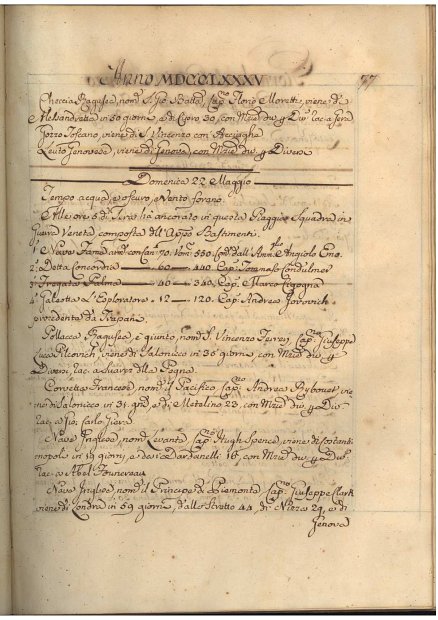 Anno MDCCLXXXV
77
Checcia Ragusea, nom.ª S. Gio Batta, Cap.º Florio Moretti, viene d'
Alessandretta in 50 giorni, e di Cipro 30, con Mzie div. p Div.
Gozzo Toscano, viene di S. Vincenzo con Acciughe
Leuto Genovese, viene di Genova, con Mzie div. p Diversi
Domenica 22 Maggio
Tempo acquoso, e oscuro, e Vento forano.
Alle ore 5 di ha ancorato in questa Piaggia Squadra in
Guerra Veneta composta dell' Appo Bastimenti.
1ª Nave Fama con Can.ⁱ 70 Vom.ⁱ 550 Com.ᵈ dall' Amm.ˡⁱᵒ Angiolo Emo.
2ª Detta Concordia — 60 — 440 Cap.º Tommaso Condulmer
3ª Fregata Palma — 40 — 340, Cap.º Marco Cicogna
4ª Galeotta l'Esploratore — 12 — 120. Cap.º Andrea
provedente da Trapani
Pollacca Ragusea, è giunto, nom.ª S. Vincenzo Ferreri, Cap.ⁿᵒ Giuseppe
Luca viene di Salonicco in 36 giorni, con Mzie div. p
Diversi, rac. a
Corvetta Francese, nom.ª il Pacifico, Cap.ⁿᵒ Andrea vie
ne di Salonicco in 31 gno. e di Metelino 23, con Mzie div. p Div.
rac. a Gio. Carlo
Nave Inglese, nom.ª Levante, Cap.ⁿᵒ Hugh Spence, viene di Costanti
nopoli in 19 giorni, e da i Dardanelli 16, con Mzie div. p Div.
rac. a Abel Fonnereau
Nave Inglese, nom.ª il Principe di Piemonte, Cap.ⁿᵒ Giuseppe Clark
viene di Londra in 59 giorni, dallo Stretto 44, di Nizza 29, e di
Genova